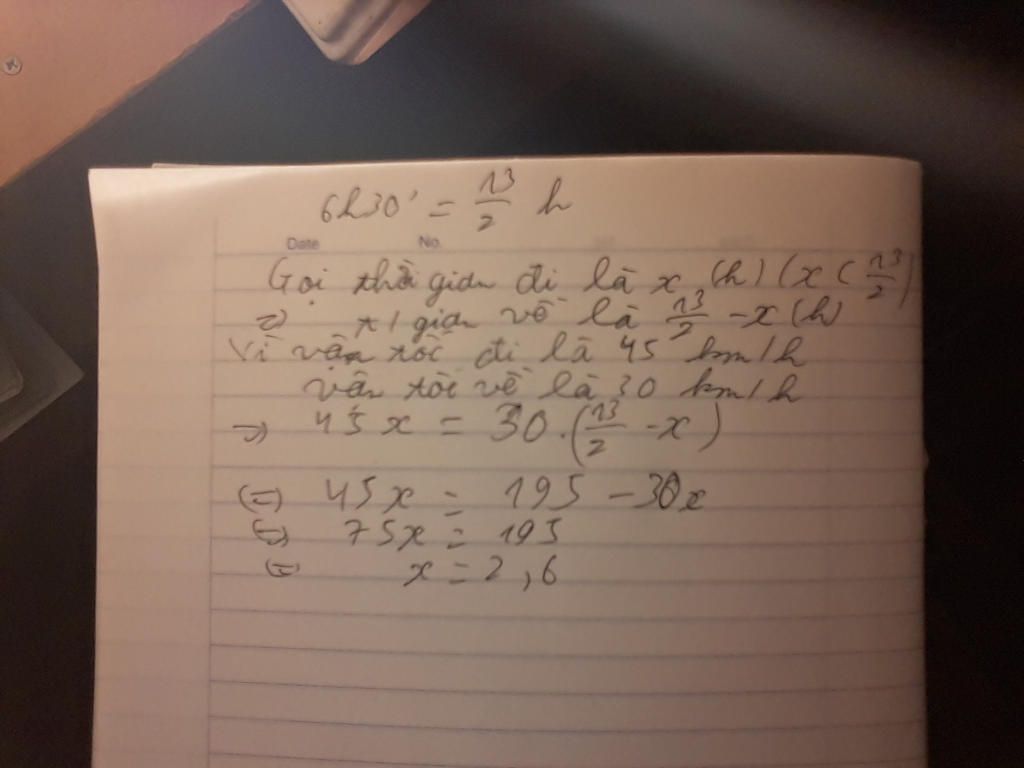 6h30' = 13/2 h
Date No.
Gọi thời gian đi là x (h) (x < 13/2)
=> t/gian về là 13/2 - x (h)
Vì vận tốc đi là 45 km/h
vận tốc về là 30 km/h
=> 45x = 30.(13/2 - x)
<=> 45x = 195 - 30x
<=> 75x = 195
<=> x = 2,6